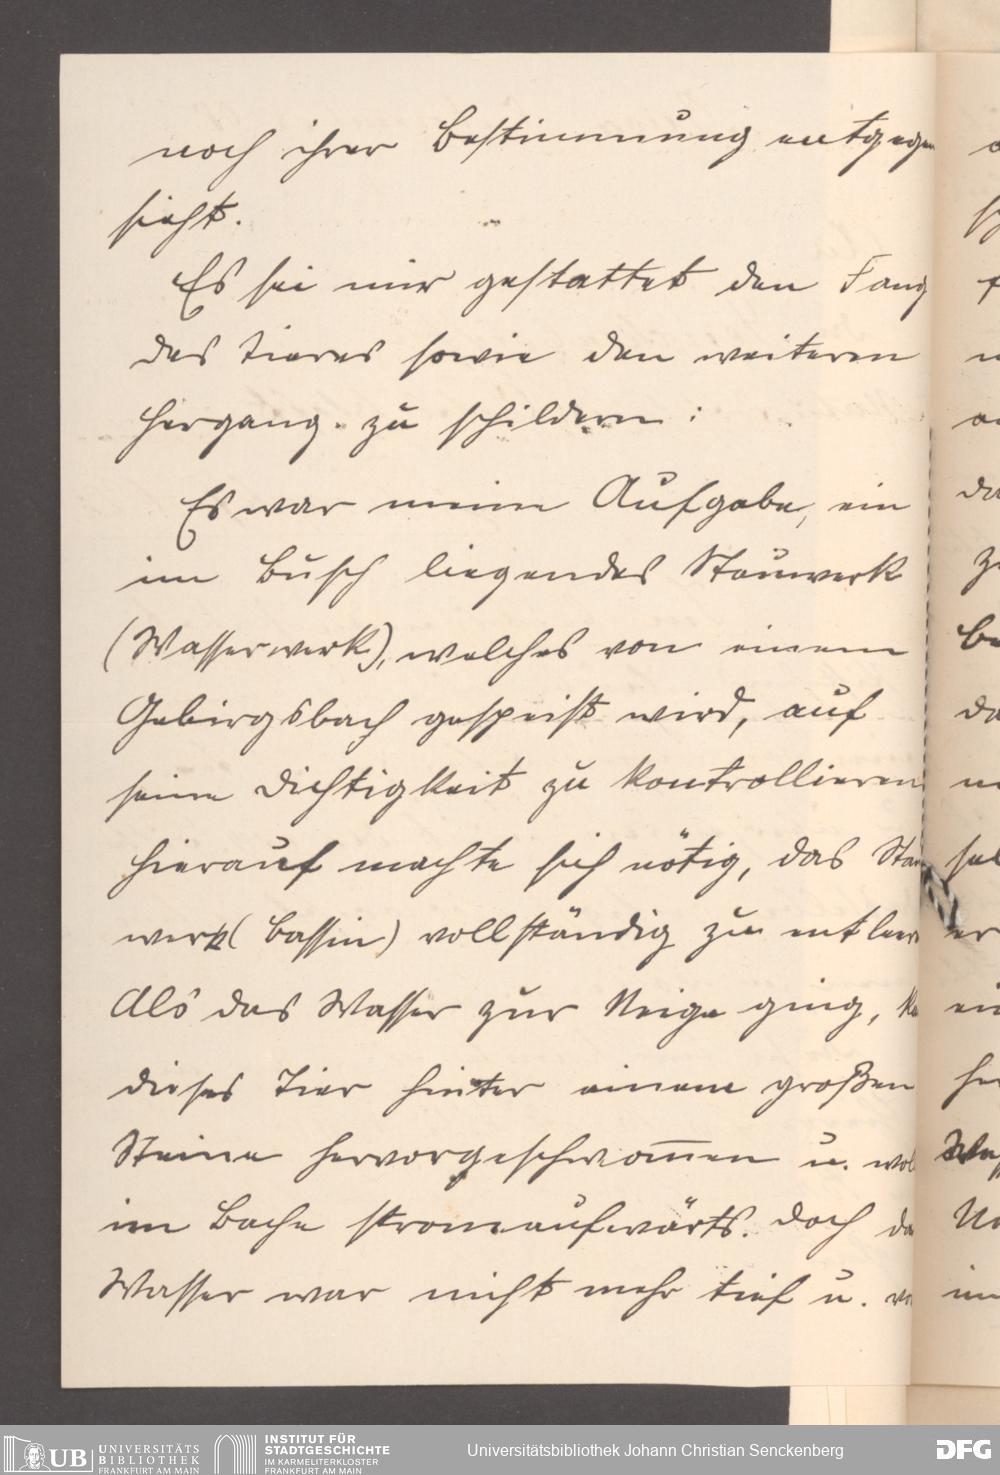 noch ihrer Bestimmung entgegen
sieht.
Es sei mir gestattet den Fang
des Tieres sowie den weiteren
Hergang zu schildern:
Es war meine Aufgabe, ein
im Busch liegendes Stauwerk
(Wasserwerk), welches von einem
Gebirgsbach gespeist wird, auf
seine Dichtigkeit zu kontrollieren
hierauf machte sich nötig, das Stau
werk (Bassin) vollständig zu entleer
Als das Wasser zur Neige ging, ka
dieses Tier hinter einem großen
Steine hervorgeschwom̅en u. wol
im Bache stromaufwärts. Doch da
Wasser war nicht mehr tief u. vo
UB UNIVERSITÄTS
BIBLIOTHEK
FRANKFURT AM MAIN
INSTITUT FÜR
STADTGESCHICHTE
IM KARMELITERKLOSTER
FRANKFURT AM MAIN
Universitätsbibliothek Johann Christian Senckenberg
DFG